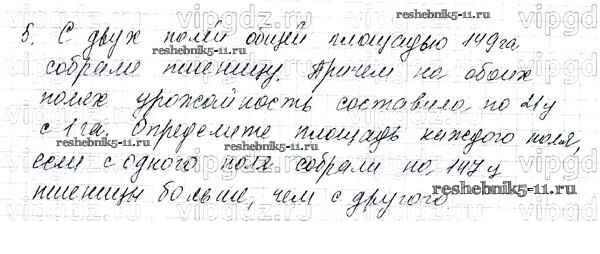 5. С двух полей общей площадью 149га
собрали пшеницу. Причем на обоих
полях урожайность составила по 21ц
с 1 га. Определите площадь каждого поля,
если с одного поля собрали на 147 ц
пшеницы больше, чем с другого.
reshebnik5-11.ru
reshebnik5-11.ru
reshebnik5-11.ru
reshebnik5-11.ru
reshebnik5-11.ru